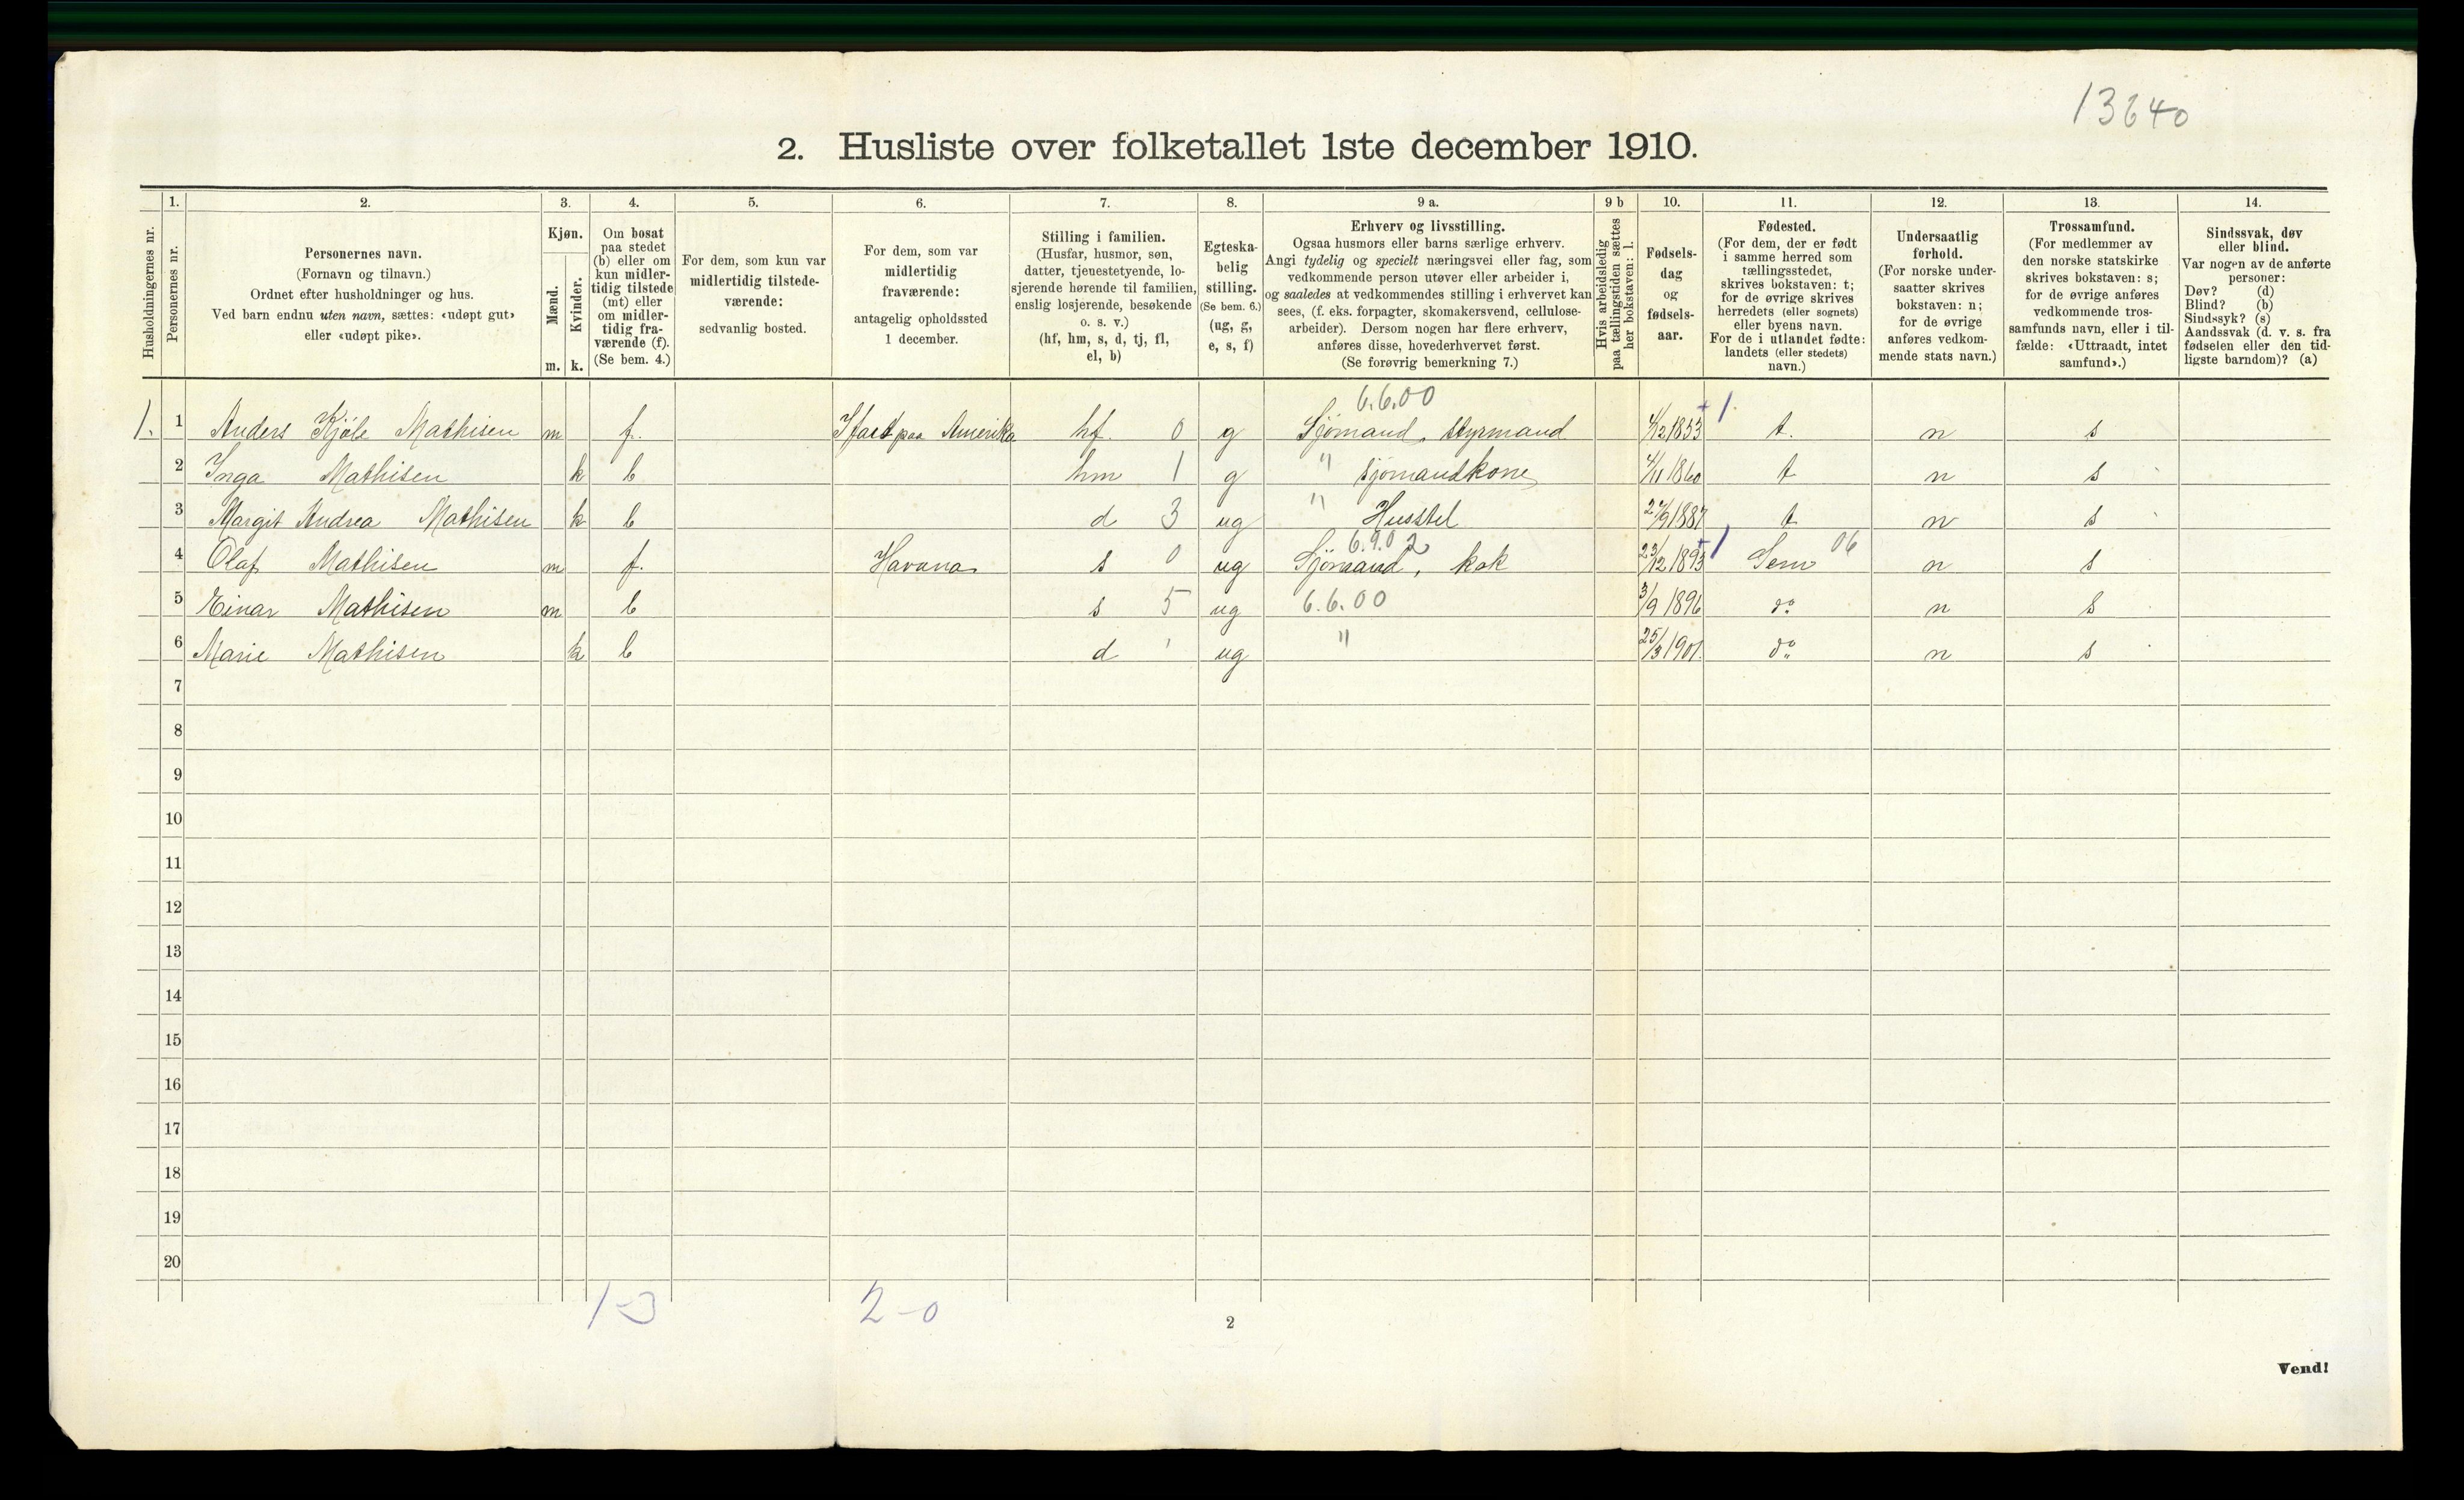 13640
2. Husliste over folketallet 1ste december 1910.
Husholdningernes nr.
1. Personernes nr.
2. Personernes navn.
(Fornavn og tilnavn.)
Ordnet efter husholdninger og hus.
Ved barn endnu uten navn, sættes: «udøpt gut»
eller «udøpt pike».
3. Kjøn.
Mænd. m.
Kvinder. k.
4. Om bosat
paa stedet
(b) eller om
kun midler-
tidig tilstede
(mt) eller
om midler-
tidig fra-
værende (f).
(Se bem. 4.)
5. For dem, som kun var
midlertidig tilstede-
værende:
sedvanlig bosted.
6. For dem, som var
midlertidig
fraværende:
antagelig opholdssted
1 december.
7. Stilling i familien.
(Husfar, husmor, søn,
datter, tjenestetyende, lo-
sjerende hørende til familien,
enslig losjerende, besøkende
o. s. v.)
(hf, hm, s, d, tj, fl,
el, b)
8. Egteska-
belig
stilling.
(Se bem. 6.)
(ug, g,
e, s, f)
9 a. Erhverv og livsstilling.
Ogsaa husmors eller barns særlige erhverv.
Angi tydelig og specielt næringsvei eller fag, som
vedkommende person utøver eller arbeider i,
og saaledes at vedkommendes stilling i erhvervet kan
sees, (f. eks. forpagter, skomakersvend, cellulose-
arbeider). Dersom nogen har flere erhverv,
anføres disse, hovederhvervet først.
(Se forøvrig bemerkning 7.)
9 b Hvis arbeidsledig
paa tællingstiden sættes
her bokstaven: l.
10. Fødsels-
dag
og
fødsels-
aar.
11. Fødested.
(For dem, der er født
i samme herred som
tællingsstedet,
skrives bokstaven: t;
for de øvrige skrives
herredets (eller sognets)
eller byens navn.
For de i utlandet fødte:
landets (eller stedets)
navn.)
12. Undersaatlig
forhold.
(For norske under-
saatter skrives
bokstaven: n;
for de øvrige
anføres vedkom-
mende stats navn.)
13. Trossamfund.
(For medlemmer av
den norske statskirke
skrives bokstaven: s;
for de øvrige anføres
vedkommende tros-
samfunds navn, eller i til-
fælde: «Uttraadt, intet
samfund».)
14. Sindssvak, døv
eller blind.
Var nogen av de anførte
personer:
Døv? (d)
Blind? (b)
Sindssyk? (s)
Aandssvak (d. v. s. fra
fødselen eller den tid-
ligste barndom)? (a)
6.6.00
1. 1 Anders Kjøle Mathisen m f. I fart paa Amerika hf. 0 g Sjömand, styrmand 4/12 1853 + 1 t. n s
2 Inga Mathisen k b hm 1 g " sjömandkone 4/11 1860 t n s
3 Margit Andrea Mathisen k b d 3 ug " Husstel 27/9 1887 t n s
6.9.02
4 Olaf Mathisen m f. Havana s 0 ug Sjömand, kok 23/12 1893 + 1 Sem 06 n s
5 Einar Mathisen m b s 5 ug 6.6.00 3/9 1896 do n s
6 Marie Mathisen k b d ' ug " 25/3 1901. do n s
7
8
9
10
11
12
13
14
15
16
17
18
19
20
1-3 2-0
2
Vend!